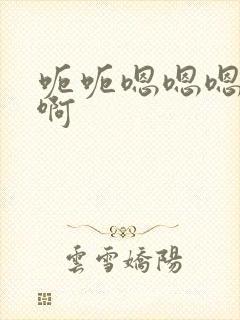 呃呃嗯嗯嗯
啊
雲雪嬌陽